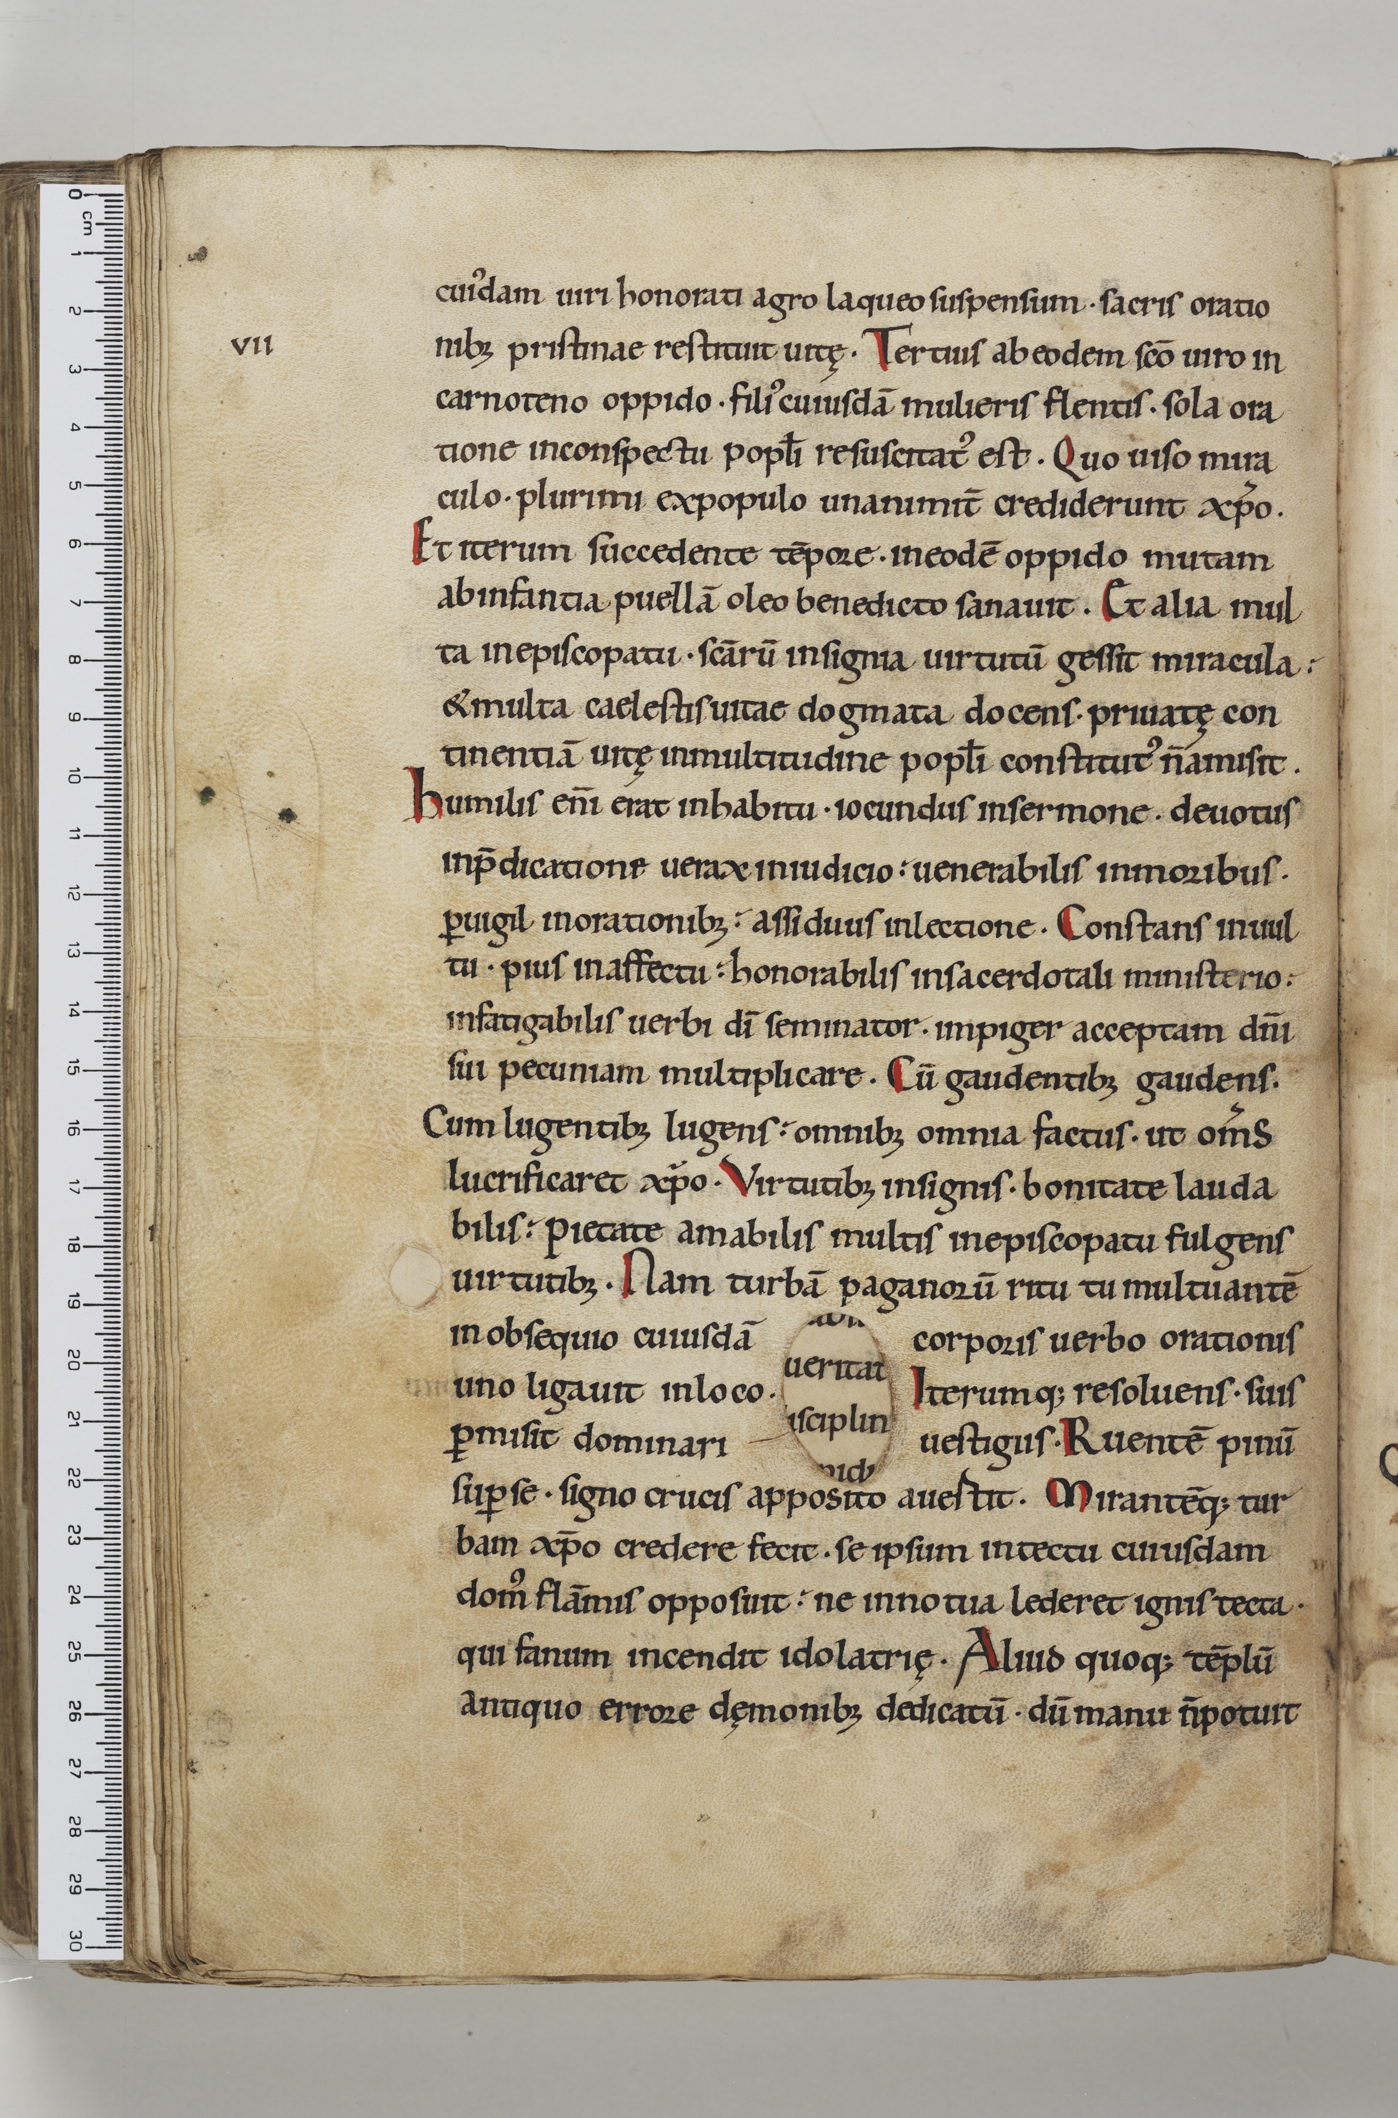 cuiꝰdam uiri honorati agro laqueo suspensum · sacris oratio
VII
nibꝫ pristinae restituit uitę. Tertius ab eodem scō uiro in
carnoteno oppido · filiꝰ cuiusdā mulieris flentis · sola ora
tione inconspectu popł̄i resuscitatꝰ est. Quo uiso mira
culo · plurimi expopulo unanimit̄ crediderunt xp̄o.
Et iterum succedente tēpore · ineodē oppido mutam
abinfantia puellā oleo benedicto sanauit. Et alia mul
ta inepiscopatu · scārū insignia uirtutū gessit miracula :
& multa caelestis uitae dogmata docens · priuatę con
tinentiā uitę inmultitudine popł̄i constitutꝰ n̄ amisit.
humilis eni̅ erat inhabitu · iocundus insermone · deuotus
inp̄dicatione uerax iniudicio : uenerabilis inmoribus.
ꝑuigil inorationibꝫ : assiduus inlectione. Constans inuul
tu · pius inaffectu : honorabilis insacerdotali ministerio :
infatigabilis uerbi dī seminator · impiger acceptam dn̄i
sui pecuniam multiplicare. Cū gaudentibꝫ gaudens.
Cum lugentibꝫ lugens : omnibꝫ omnia factus · ut om̄s
lucrificaret xp̄o. Virtutibꝫ insignis · bonitate lauda
bilis : pietate amabilis multis inepiscopatu fulgens
uirtutibꝫ. Nam turbā paganorū ritu tumultuantē
in obsequio cuiusdā corporis uerbo orationis
ueritat
uno ligauit inloco. Iterumqꝫ resoluens · suis
isciplin
ꝑmisit dominari uestigiis · Ruentē pinū
suꝑse · signo crucis apposito auestit. Mirantēqꝫ tur
bam xp̄o credere fecit · se ipsum intectu cuiusdam
domꝰ flām̄is opposuit : ne innotua lederet ignis tecta ·
qui fanum incendit idolatrię. Aliud quoqꝫ tēplū
antiquo errore dęmonibꝫ dedicatū · dū manu n̄ potuit